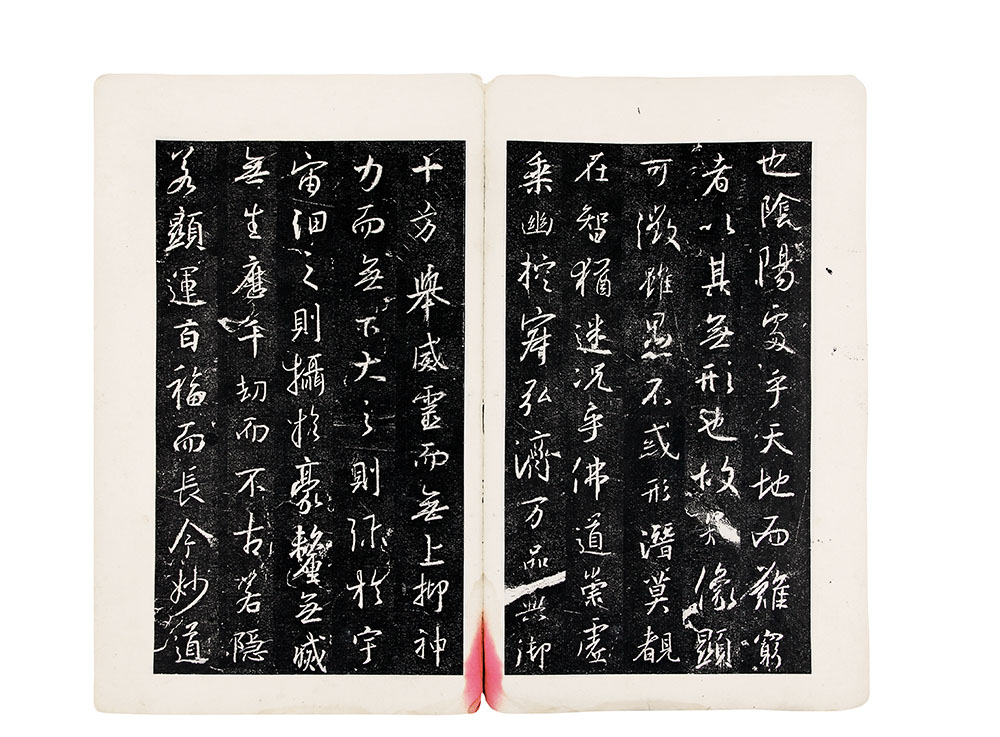 也陰陽處乎天地而難窮
者以其無形也故知像顯
可徵雖愚不惑形潛莫覩
在智猶迷況乎佛道崇虛
乘幽控寂弘濟万品典御
十方舉威靈而無上抑神
力而無下大之則彌於宇
宙細之則攝於豪釐無滅
無生歷千劫而不古若隱
若顯運百福而長今妙道